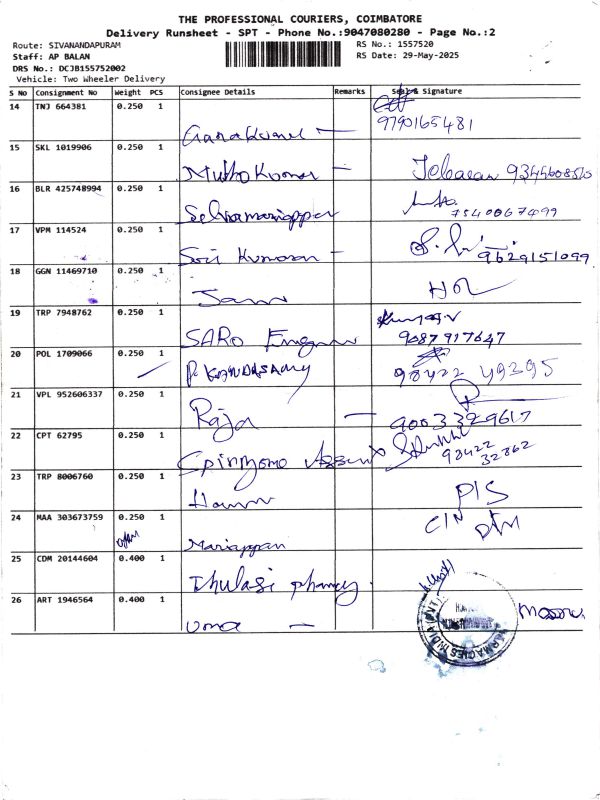 THE PROFESSIONAL COURIERS, COIMBATORE
Delivery Runsheet - SPT - Phone No.:9047080280 - Page No.:2
Route: SIVANANDAPURAM
Staff: AP BALAN
DRS No.: DCJB155752002
Vehicle: Two Wheeler Delivery
RS No.: 1557520
RS Date: 29-May-2025
S No Consignment No Weight PCS Consignee Details Remarks Seal & Signature
14 TNJ 664381 0.250 1
9790165481
15 SKL 1019906 0.250 1
Muthokumar
16 BLR 425748994 0.250 1
Selvamariappan
7540067499
17 VPM 114524 0.250 1
Sri Kumaran
9629151099
18 GGN 11469710 0.250 1
19 TRP 7948762 0.250 1
SARO
9087917647
20 POL 1709066 0.250 1
P. KANDASAMY
98422 49395
21 VPL 952606337 0.250 1
Raja
9003329617
22 CPT 62795 0.250 1
98422
32862
23 TRP 8006760 0.250 1
24 MAA 303673759 0.250 1
Mariappan
25 CDM 20144604 0.400 1
Thulasi phamcy
26 ART 1946564 0.400 1
uma